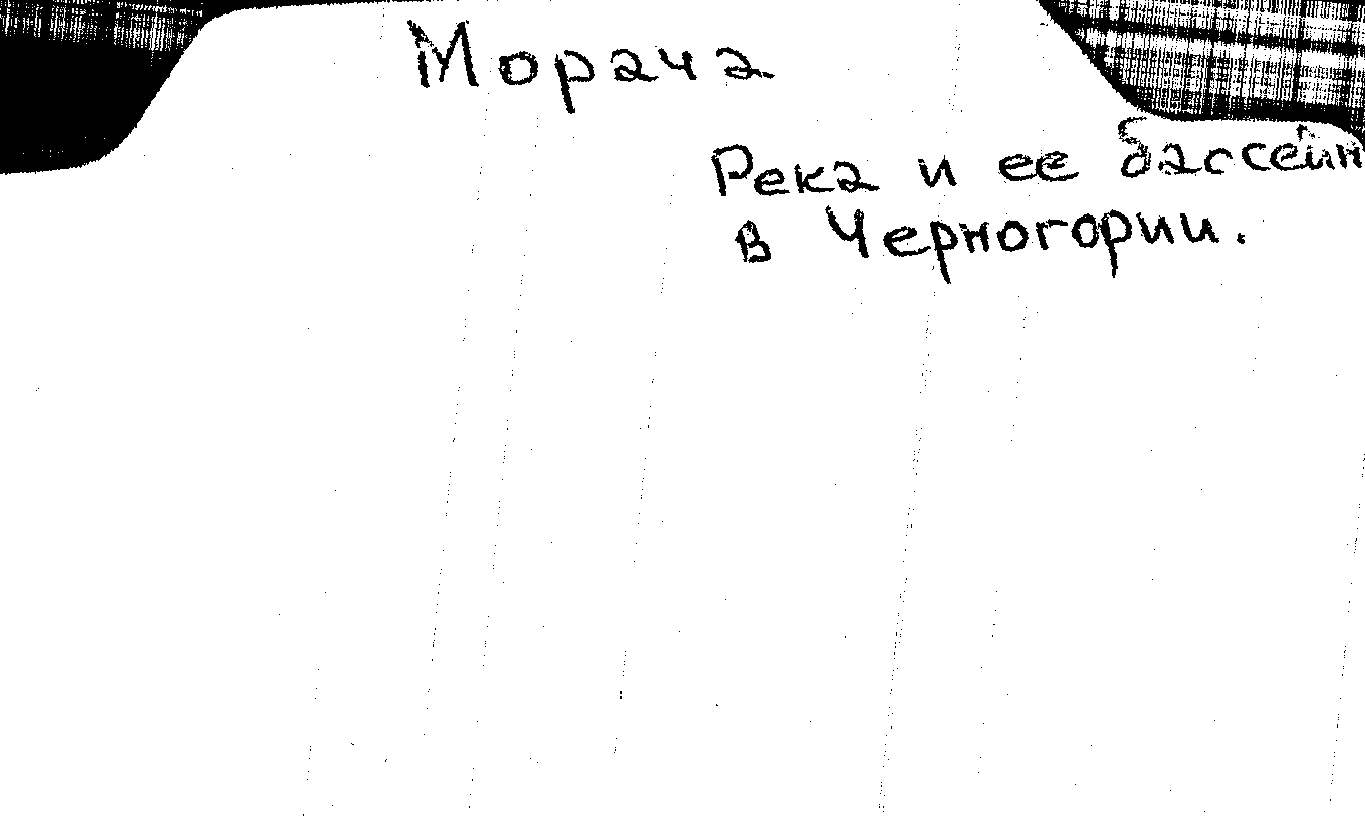 Морача
Река и ее бассейн
в Черногории.